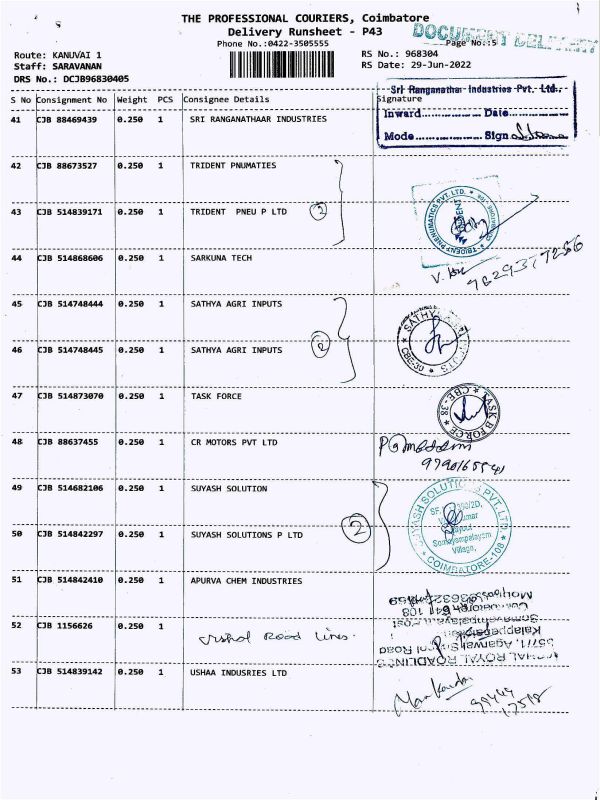 THE PROFESSIONAL COURIERS, Coimbatore
Delivery Runsheet - P43
Phone No.:0422-3505555
Page No.:5
Route: KANUVAI 1
RS No.: 968304
Staff: SARAVANAN
RS Date: 29-Jun-2022
DRS No.: DCJB96830405
Sri Ranganathar Industries Pvt. Ltd.
S No Consignment No Weight PCS Consignee Details Signature
Inward............... Date...............
Mode............... Sign
41 CJB 88469439 0.250 1 SRI RANGANATHAAR INDUSTRIES
42 CJB 88673527 0.250 1 TRIDENT PNUMATIES
43 CJB 514839171 0.250 1 TRIDENT PNEU P LTD 2
TRIDENT PNEUMATICS PVT. LTD.
44 CJB 514868606 0.250 1 SARKUNA TECH
45 CJB 514748444 0.250 1 SATHYA AGRI INPUTS
46 CJB 514748445 0.250 1 SATHYA AGRI INPUTS 2
SATHYA AGRI INPUTS
CBE-30
47 CJB 514873070 0.250 1 TASK FORCE
TASK B FORCE
CBE-38
48 CJB 88637455 0.250 1 CR MOTORS PVT LTD
49 CJB 514682106 0.250 1 SUYASH SOLUTION
50 CJB 514842297 0.250 1 SUYASH SOLUTIONS P LTD 2
SUYASH SOLUTIONS PVT. LTD.
Somayampalayam
Village,
COIMBATORE-108
51 CJB 514842410 0.250 1 APURVA CHEM INDUSTRIES
52 CJB 1156626 0.250 1 Vishal Road Lines.
VISHAL ROYAL ROADLINES
357/1, Agarwal School Road
Kalappanaickenpalayam
Somayampalayam Post
53 CJB 514839142 0.250 1 USHAA INDUSRIES LTD